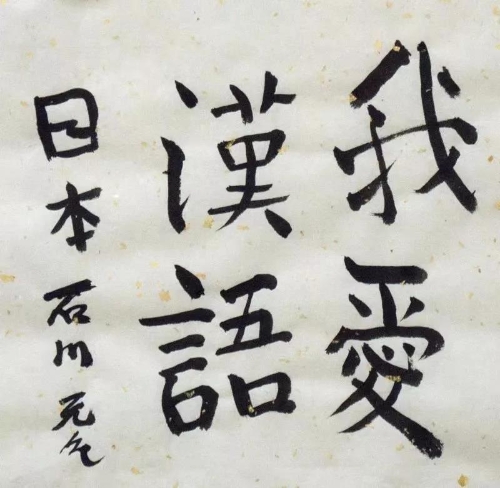 我愛
漢語
日本 石川 元気